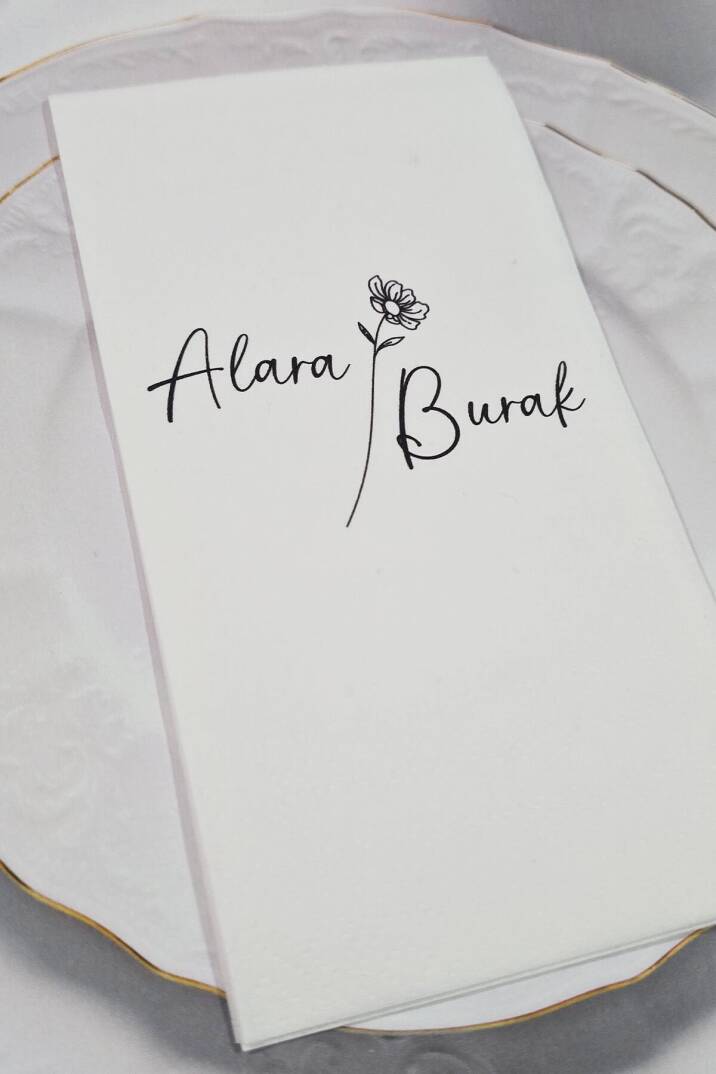 Alara
Burak